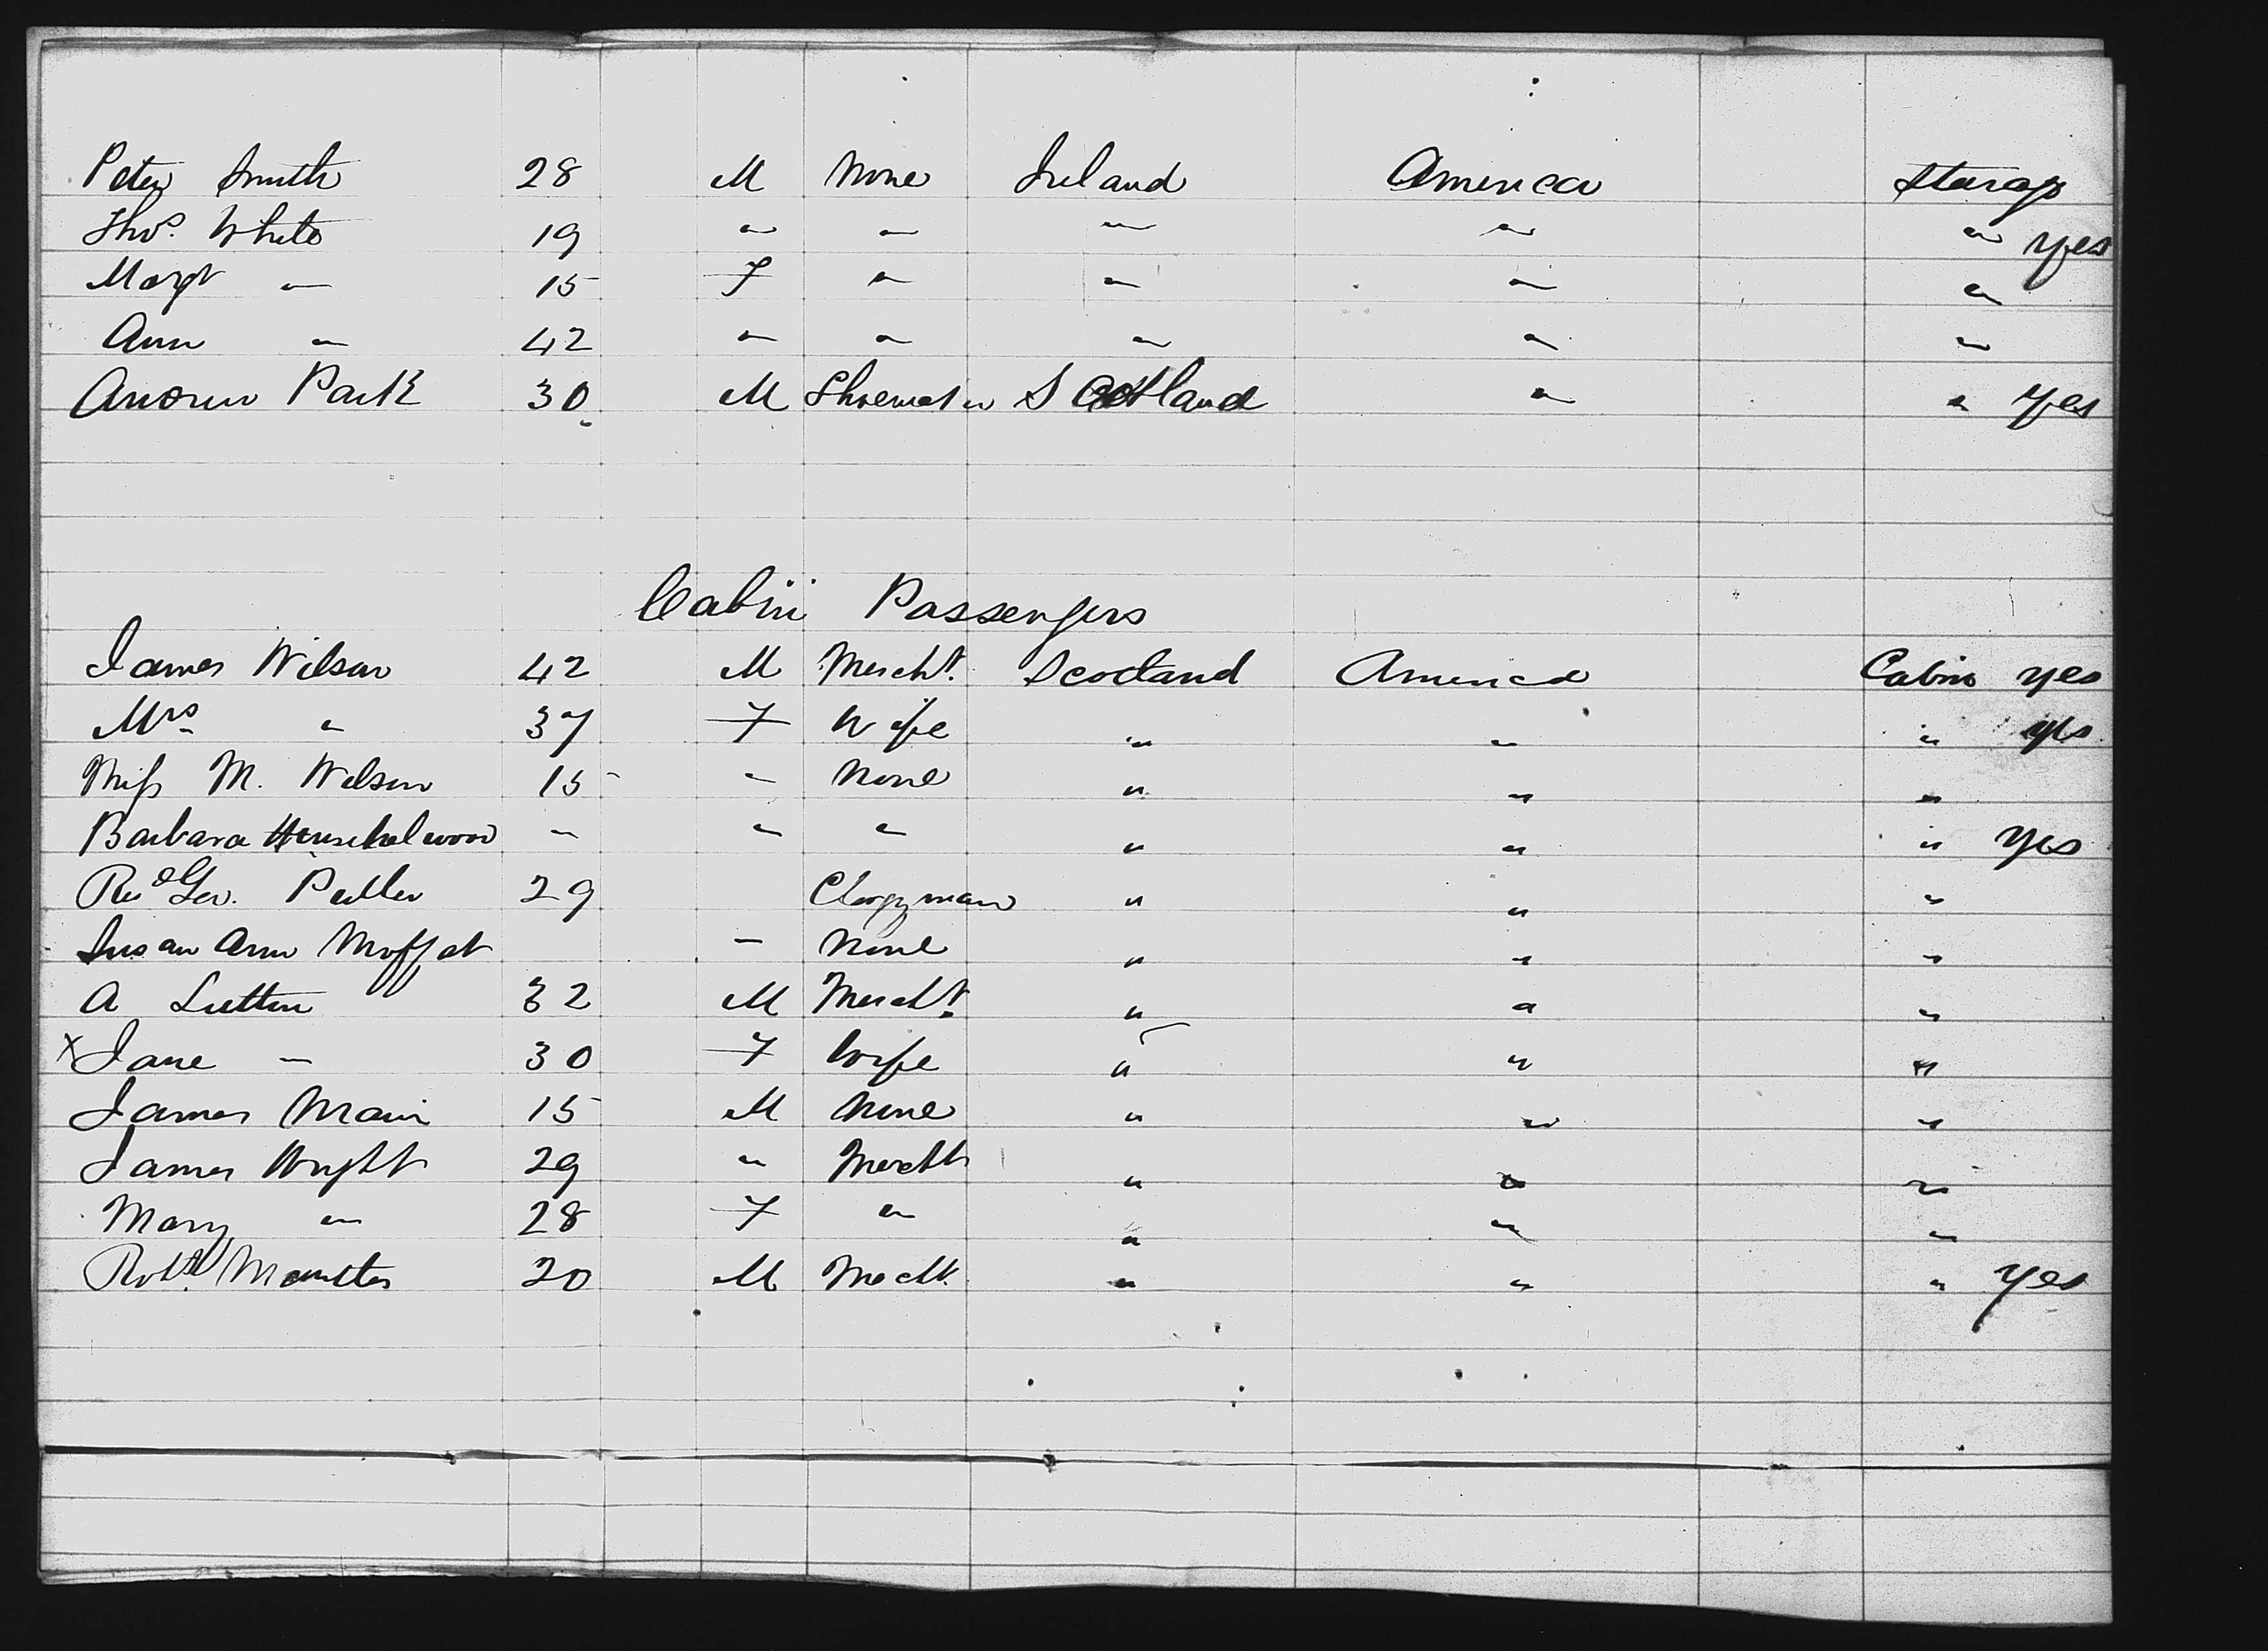 Peter Smith 28 M None Ireland America Sterage
Thos. White 19 " " " " " yes
Margt " 15 F " " " "
Ann " 42 " " " " "
Andrew Park 30 M Shoemaker Scotland " " yes
Cabin Passengers
James Wilson 42 M Mercht. Scotland America Cabin yes
Mrs " 37 F Wife " " " yes
Miss M. Wilson 15 " None " " "
Barbara - " " " " " yes
Revd Geo. 29 Clergyman " " "
Susan Ann Moffat - None " " "
A 32 M Mercht. " " "
x Jane - 30 F Wife " " "
James Main 15 M None " " "
James Wright 29 " Mercht " " "
Mary " 28 F " " " "
Robt. 20 M Mecht. " " " yes